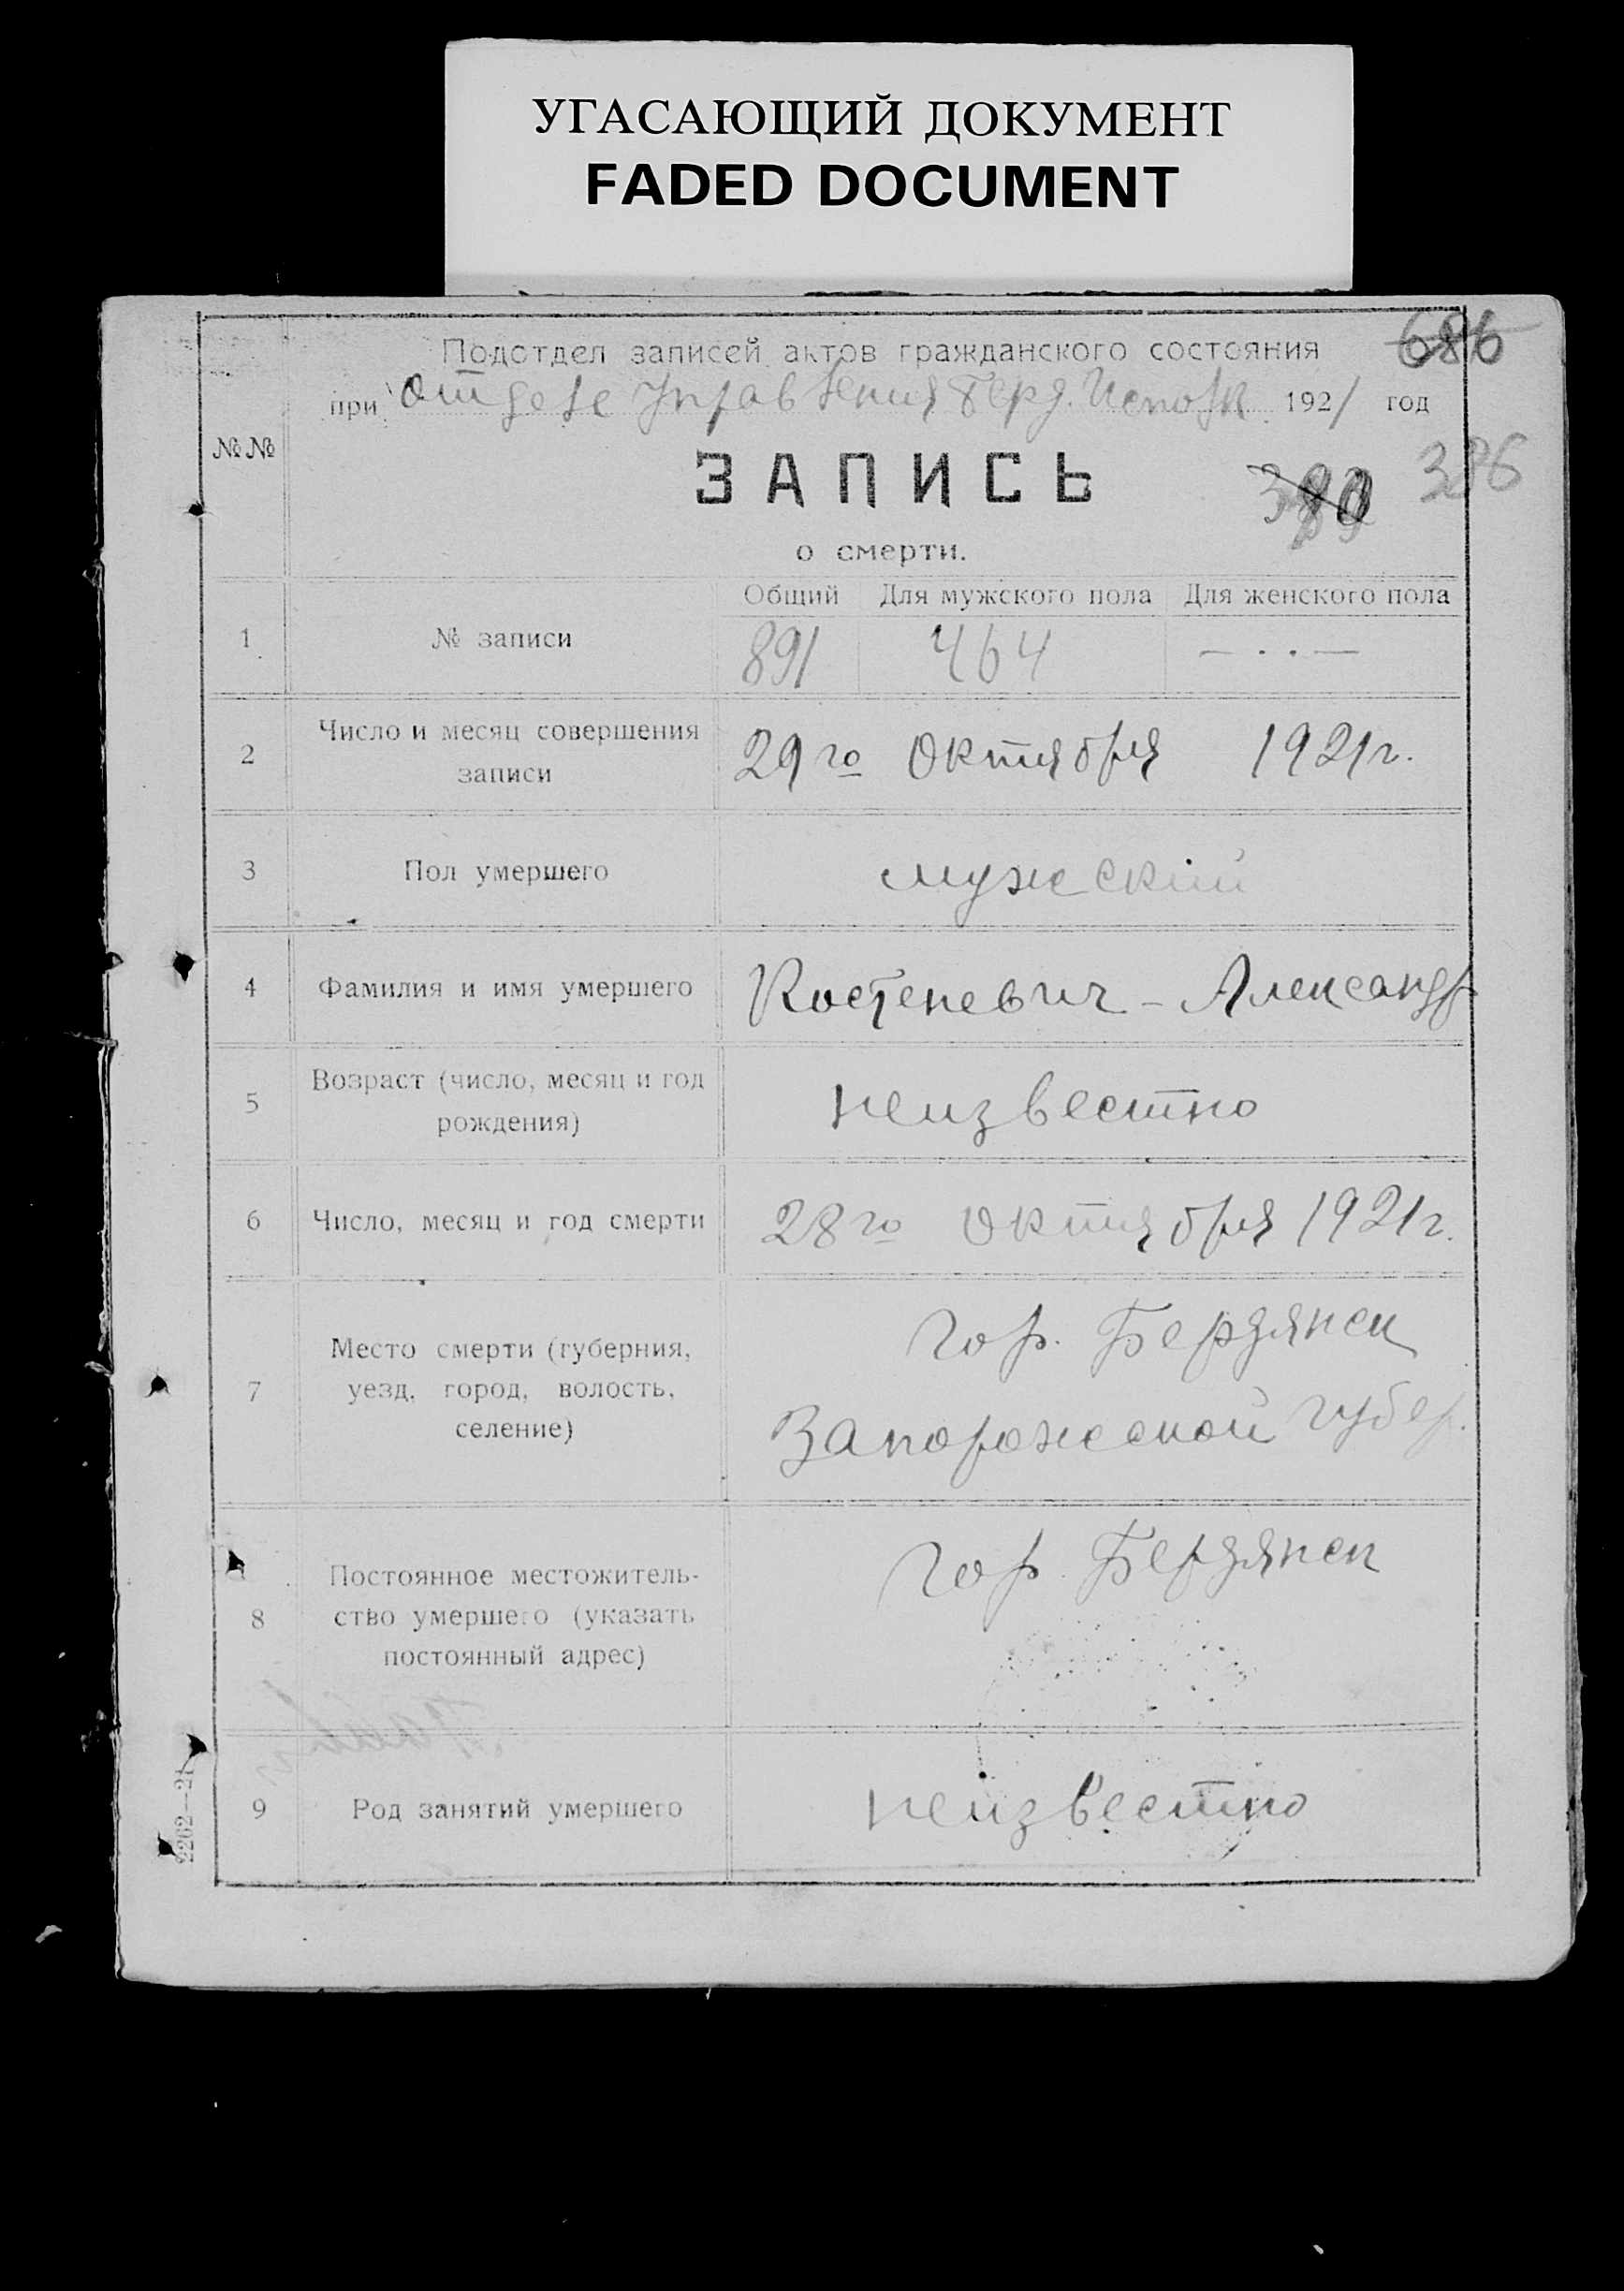 УГАСАЮЩИЙ ДОКУМЕНТ
FADED DOCUMENT
686
Подотдел записей актов гражданского состояния
при Отделе Управления Берд. Исполк. 1921 год
№№
ЗАПИСЬ
386
о смерти.
Общий Для мужского пола Для женского пола
1 № записи 891 464 — . . —
2 Число и месяц совершения
записи
29го Октября 1921г.
3 Пол умершего мужской
4 Фамилия и имя умершего Костеневич - Александр
5 Возраст (число, месяц и год
рождения)
неизвестно
6 Число, месяц и год смерти 28го Октября 1921г.
7 Место смерти (губерния,
уезд, город, волость,
селение)
гор. Бердянск
Запорожской губер.
8 Постоянное местожитель-
ство умершего (указать
постоянный адрес)
гор. Бердянск
9 Род занятий умершего неизвестно
2262—21